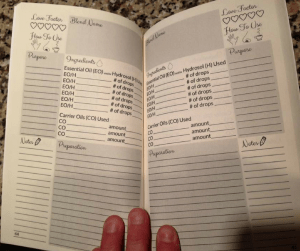 Love Factor
Blend Name
How To Use
Prepare
Ingredients
Essential Oil (EO) Hydrosol (H) Used
EO/H # of drops
EO/H # of drops
EO/H # of drops
EO/H # of drops
EO/H # of drops
Carrier Oils (CO) Used
CO amount
CO amount
CO amount
Notes
Preparation
Blend Name
Love Factor
How To Use
Ingredients
Prepare
Essential Oil (EO) Hydrosol (H) Used
EO/H # of drops
EO/H # of drops
EO/H # of drops
EO/H # of drops
EO/H # of drops
Carrier Oils (CO) Used
CO amount
CO amount
CO amount
Preparation
Notes